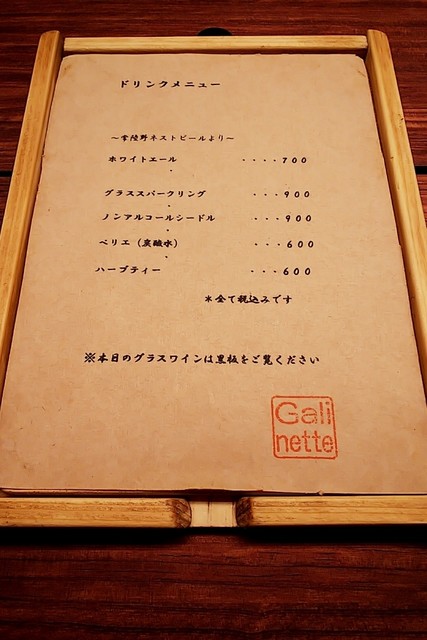 ドリンクメニュー
～常陸野ネストビールより～
ホワイトエール ････700
グラススパークリング ･･･900
ノンアルコールシードル ･･･900
ペリエ（炭酸水） ･･･600
ハーブティー ･･･600
＊全て税込みです
※本日のグラスワインは黒板をご覧ください
Gali
nette